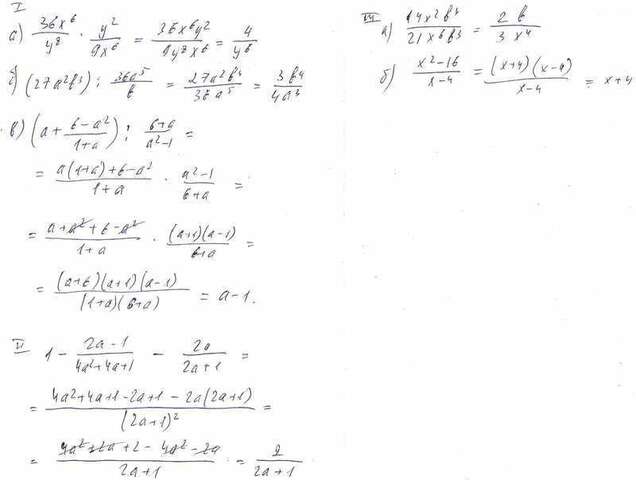 I
а) 36x⁶/y⁸ · y²/9x⁶ = 36x⁶y²/9y⁸x⁶ = 4/y⁶
б) (27a²b³) : 36a⁵/b = 27a²b⁴/36a⁵ = 3b⁴/4a³
в) (a + (6-a²)/(1+a)) : (6+a)/(a²-1) =
= (a(1+a)+6-a²)/(1+a) · (a²-1)/(6+a) =
= (a+a²+6-a²)/(1+a) · (a+1)(a-1)/(6+a) =
= (a+6)(a+1)(a-1)/(1+a)(6+a) = a-1.
II
1 - (2a-1)/(4a²+4a+1) - 2a/(2a+1) =
= (4a²+4a+1-2a+1-2a(2a+1))/(2a+1)² =
= (4a²+2a+2-4a²-2a)/(2a+1) = 2/(2a+1)
а) 14x²b⁴/21x⁶b³ = 2b/3x⁴
б) (x²-16)/(x-4) = (x+4)(x-4)/(x-4) = x+4